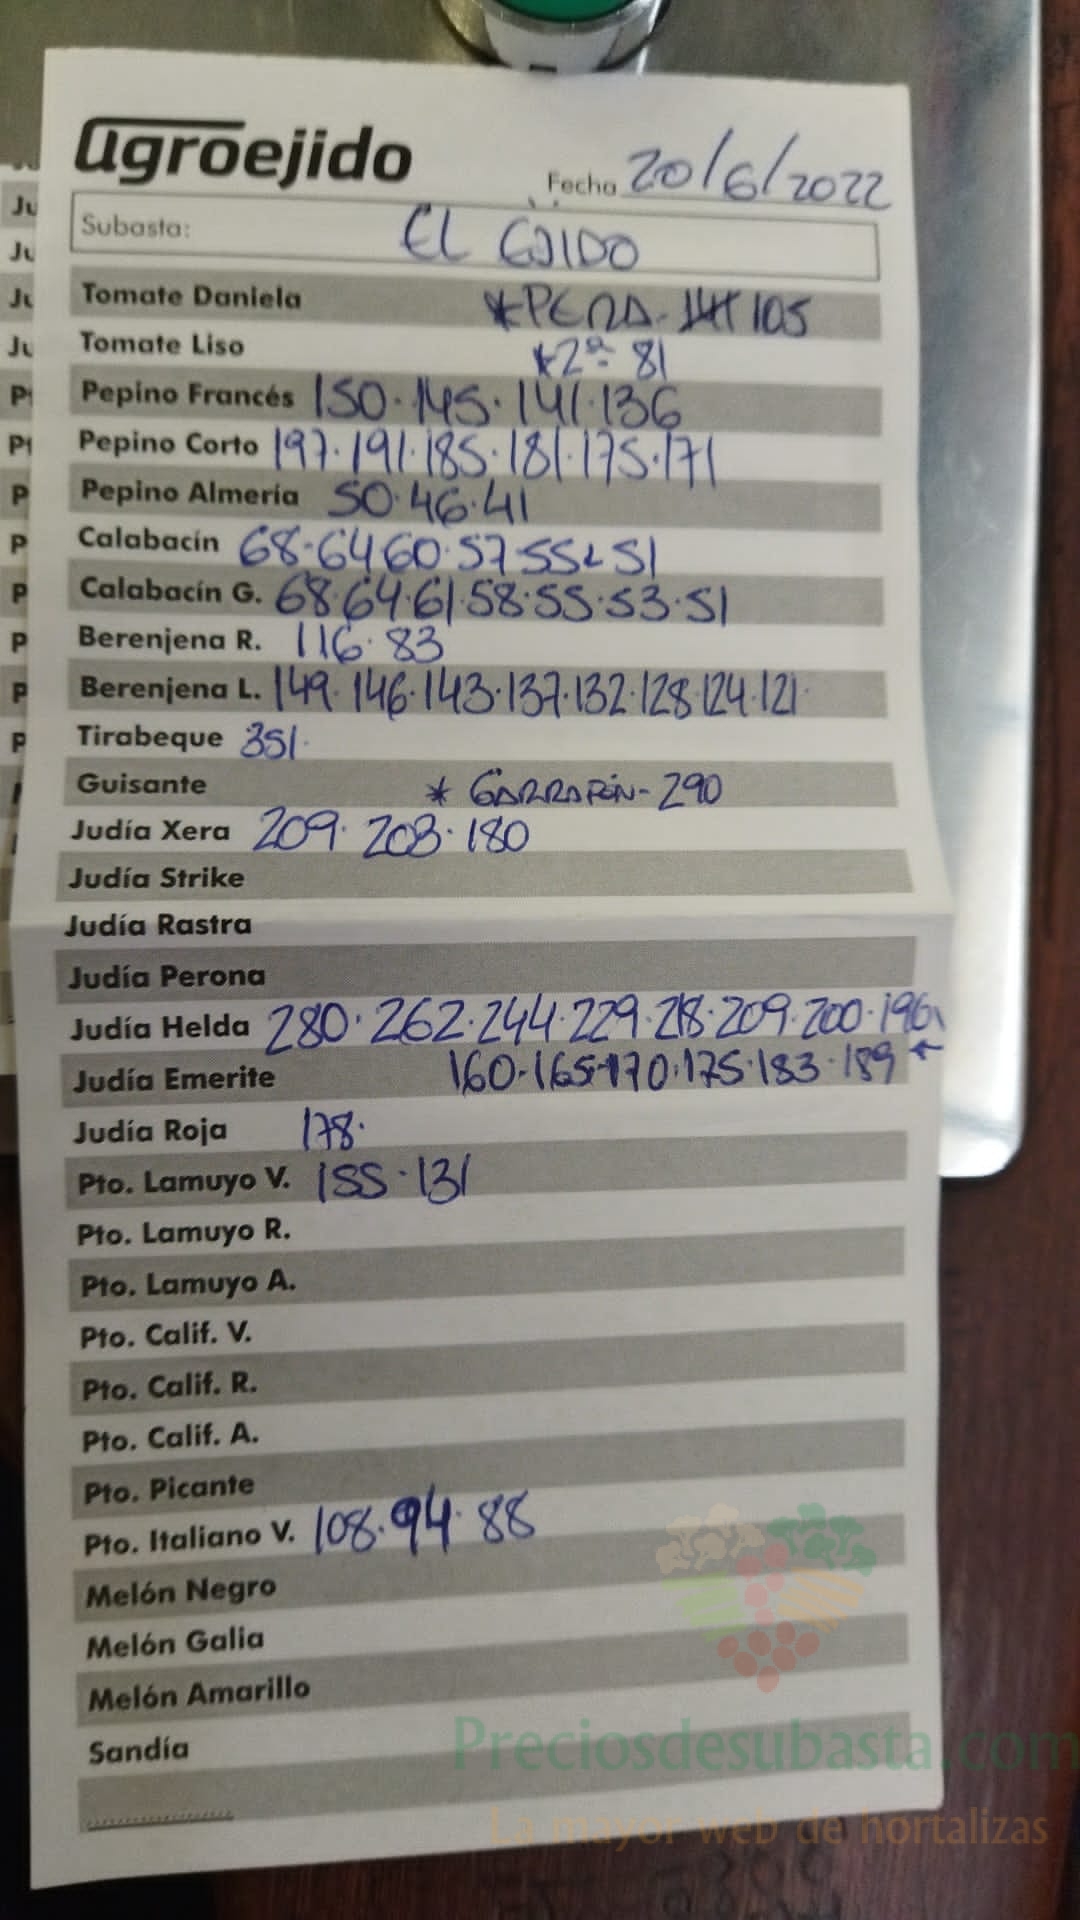 agroejido
Fecha 20/6/2022
Subasta: EL EJIDO
Tomate Daniela *PERA- 105
Tomate Liso *2ª- 81
Pepino Francés 150·145·141·136
Pepino Corto 197·191·185·181·175·171
Pepino Almería 50·46·41
Calabacín 68·64 60·57·55 51
Calabacín G. 68·64·61·58·55·53·51
Berenjena R. 116·83
Berenjena L. 149·146·143·137·132·128·124·121·
Tirabeque 351·
Guisante * GARRAFÓN- 290
Judía Xera 209·203·180
Judía Strike
Judía Rastra
Judía Perona
Judía Helda 280·262·244·229·218·209·200·196
Judía Emerite 160·165·170·175·183·189 ←
Judía Roja 178·
Pto. Lamuyo V. 155·131
Pto. Lamuyo R.
Pto. Lamuyo A.
Pto. Calif. V.
Pto. Calif. R.
Pto. Calif. A.
Pto. Picante
Pto. Italiano V. 108·94·88
Melón Negro
Melón Galia
Melón Amarillo
Sandía
Preciosdesubasta.com
La mayor web de hortalizas